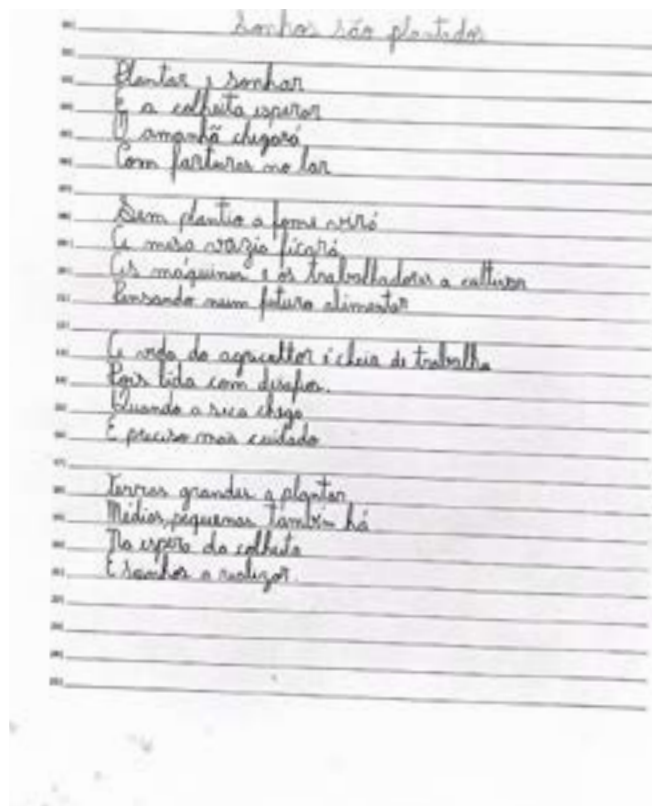 Sonhos são plantados
Plantar e sonhar
E a colheita esperar
O amanhã chegará
Com farturas no lar
Sem plantio a fome virá
A mesa vazia ficará
As máquinas e os trabalhadores a cultivar
Pensando num futuro alimentar
A vida do agricultor é cheia de trabalho
Pois lida com desafios.
Quando a seca chega
É preciso mais cuidado
Terras grandes a plantar
Médias, pequenas também há
Na espera da colheita
E sonhos a realizar.